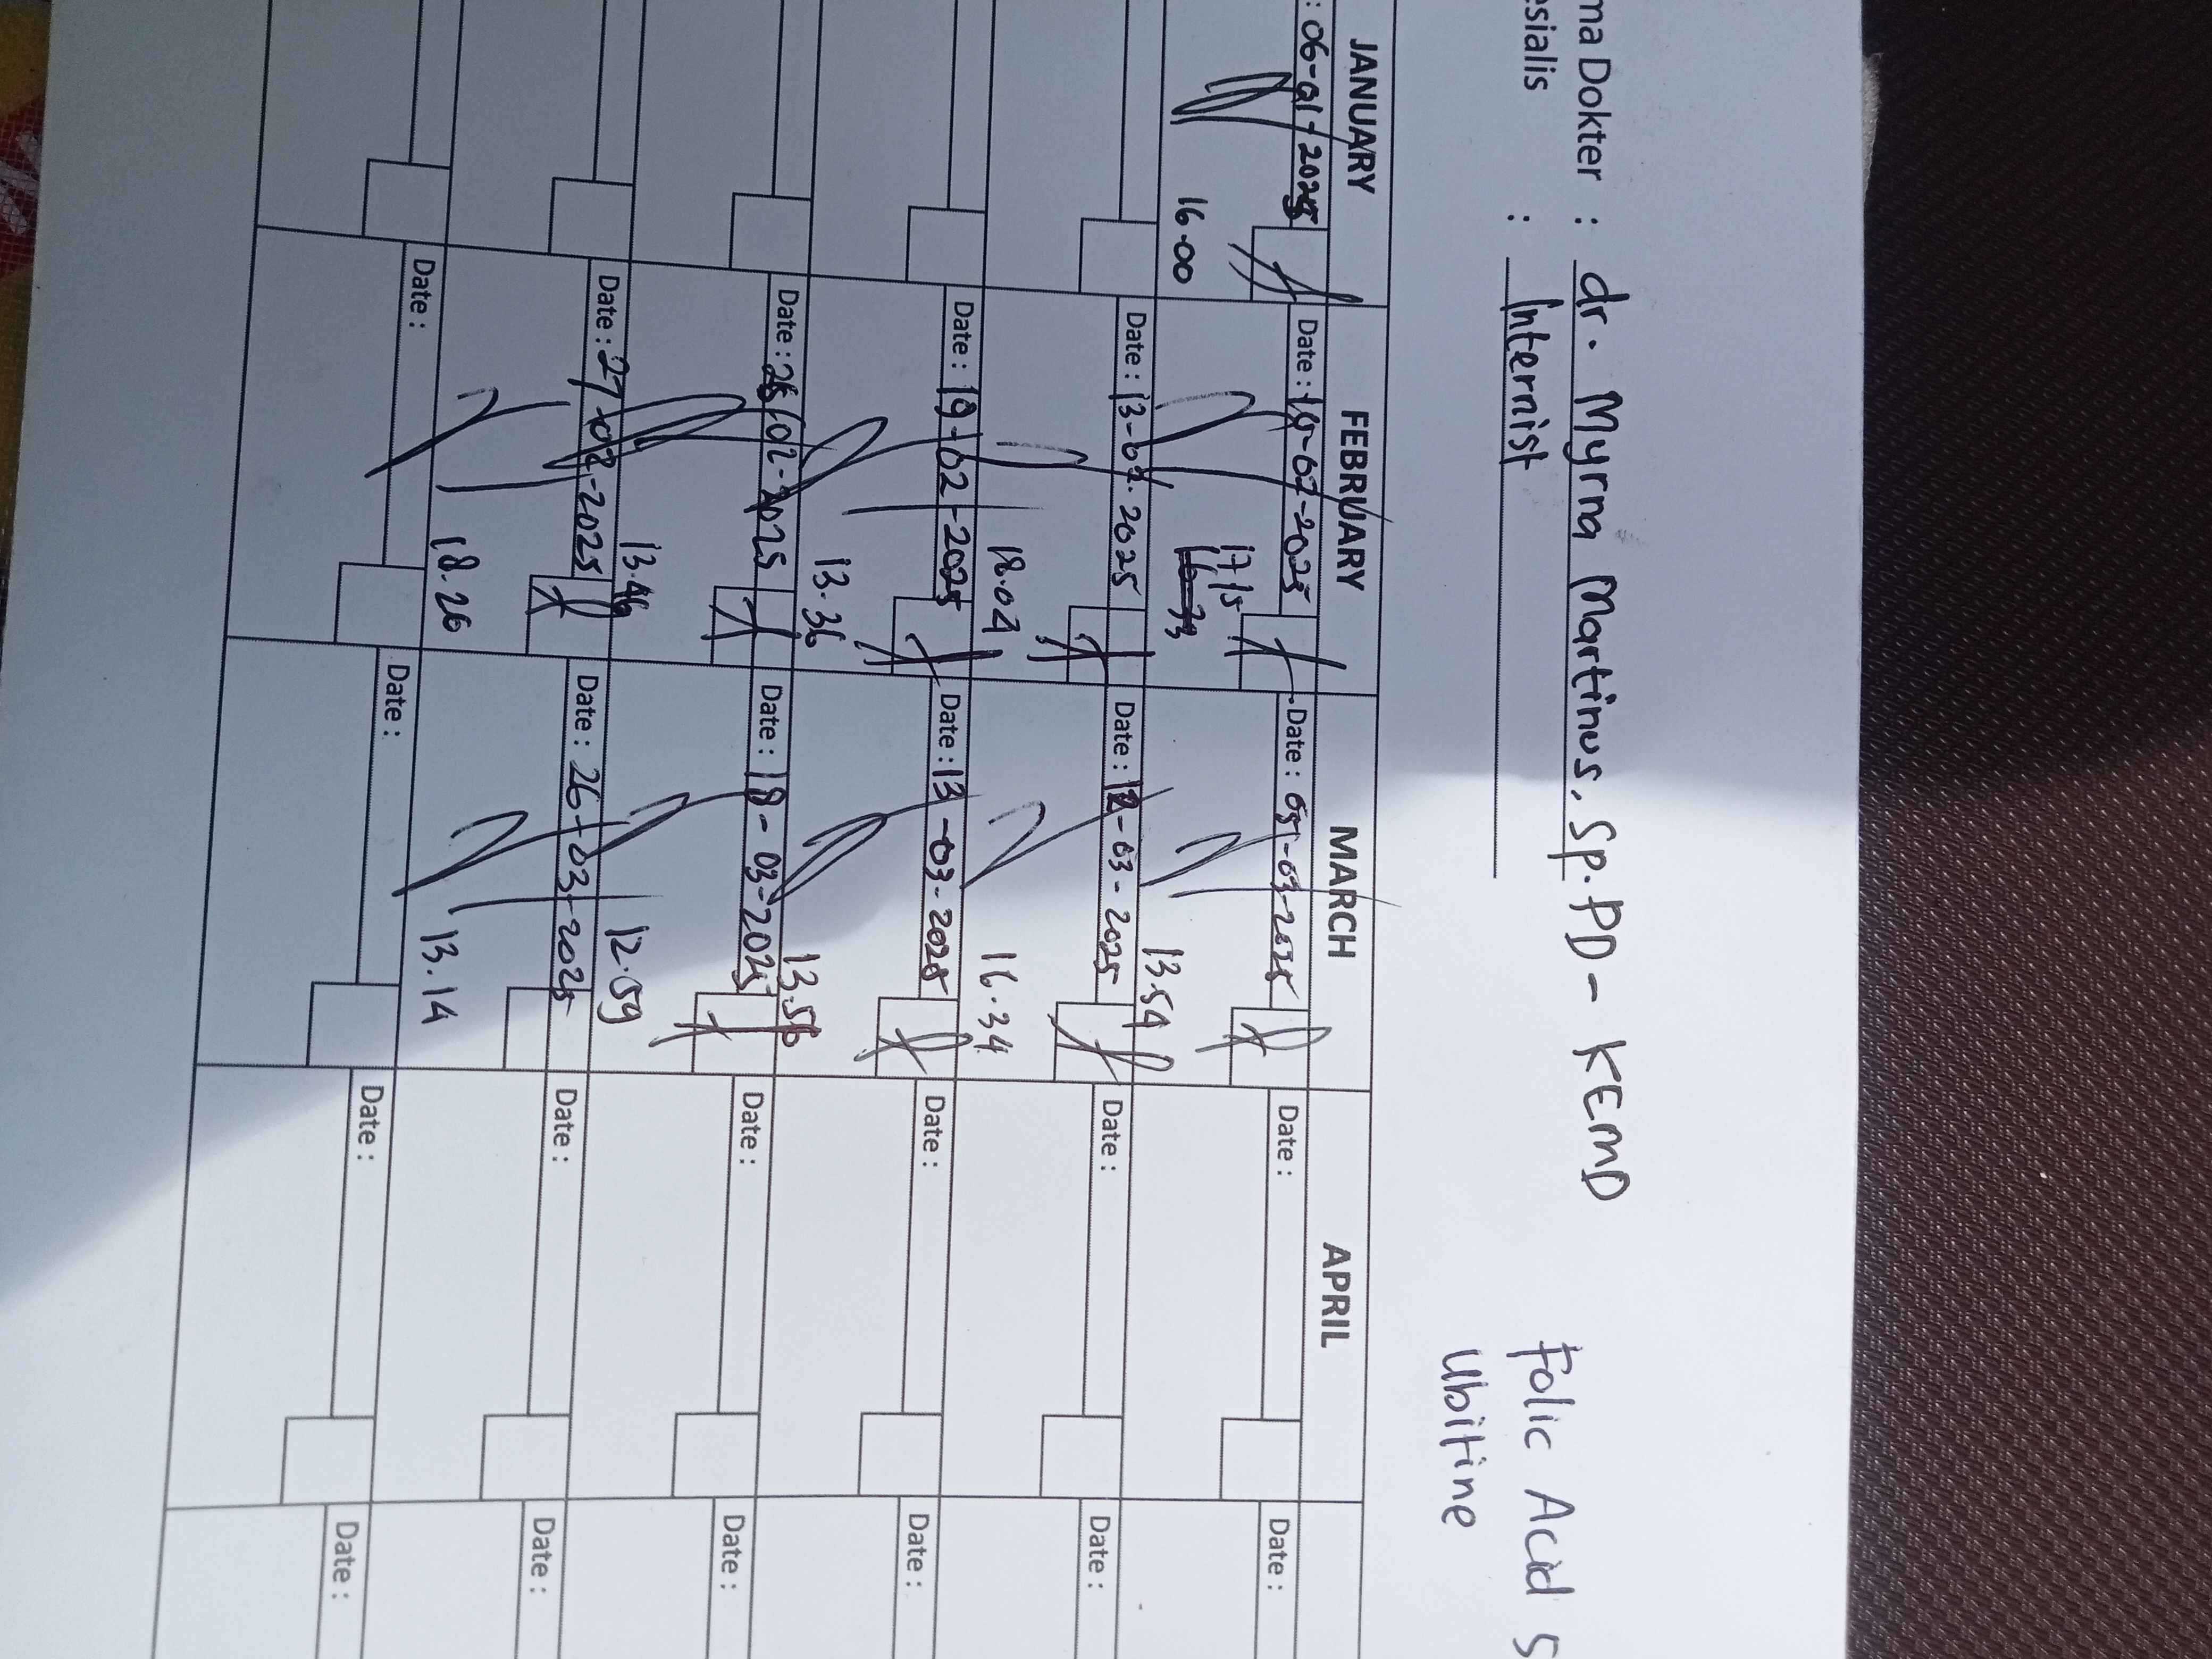 ma Dokter : dr. Myrna Martinus, Sp.PD- KEMD
esialis : Internist
Folic Acid 5
Ubitine
JANUARY FEBRUARY MARCH APRIL
: 06-01-2025 Date : -02-2025 Date : 05-03-2025 Date : Date :
16.00 17.15 13.54
Date : 13-02-2025 Date : 12-03-2025 Date : Date :
18.04 16.34
Date : 19-02-2025 Date : 13-03-2025 Date : Date :
13.36 13.56
Date : 26-02-2025 Date : 18-03-2025 Date : Date :
13.46 12.59
Date : 27-02-2025 Date : 26-03-2025 Date : Date :
18.26 13.14
Date : Date : Date : Date :